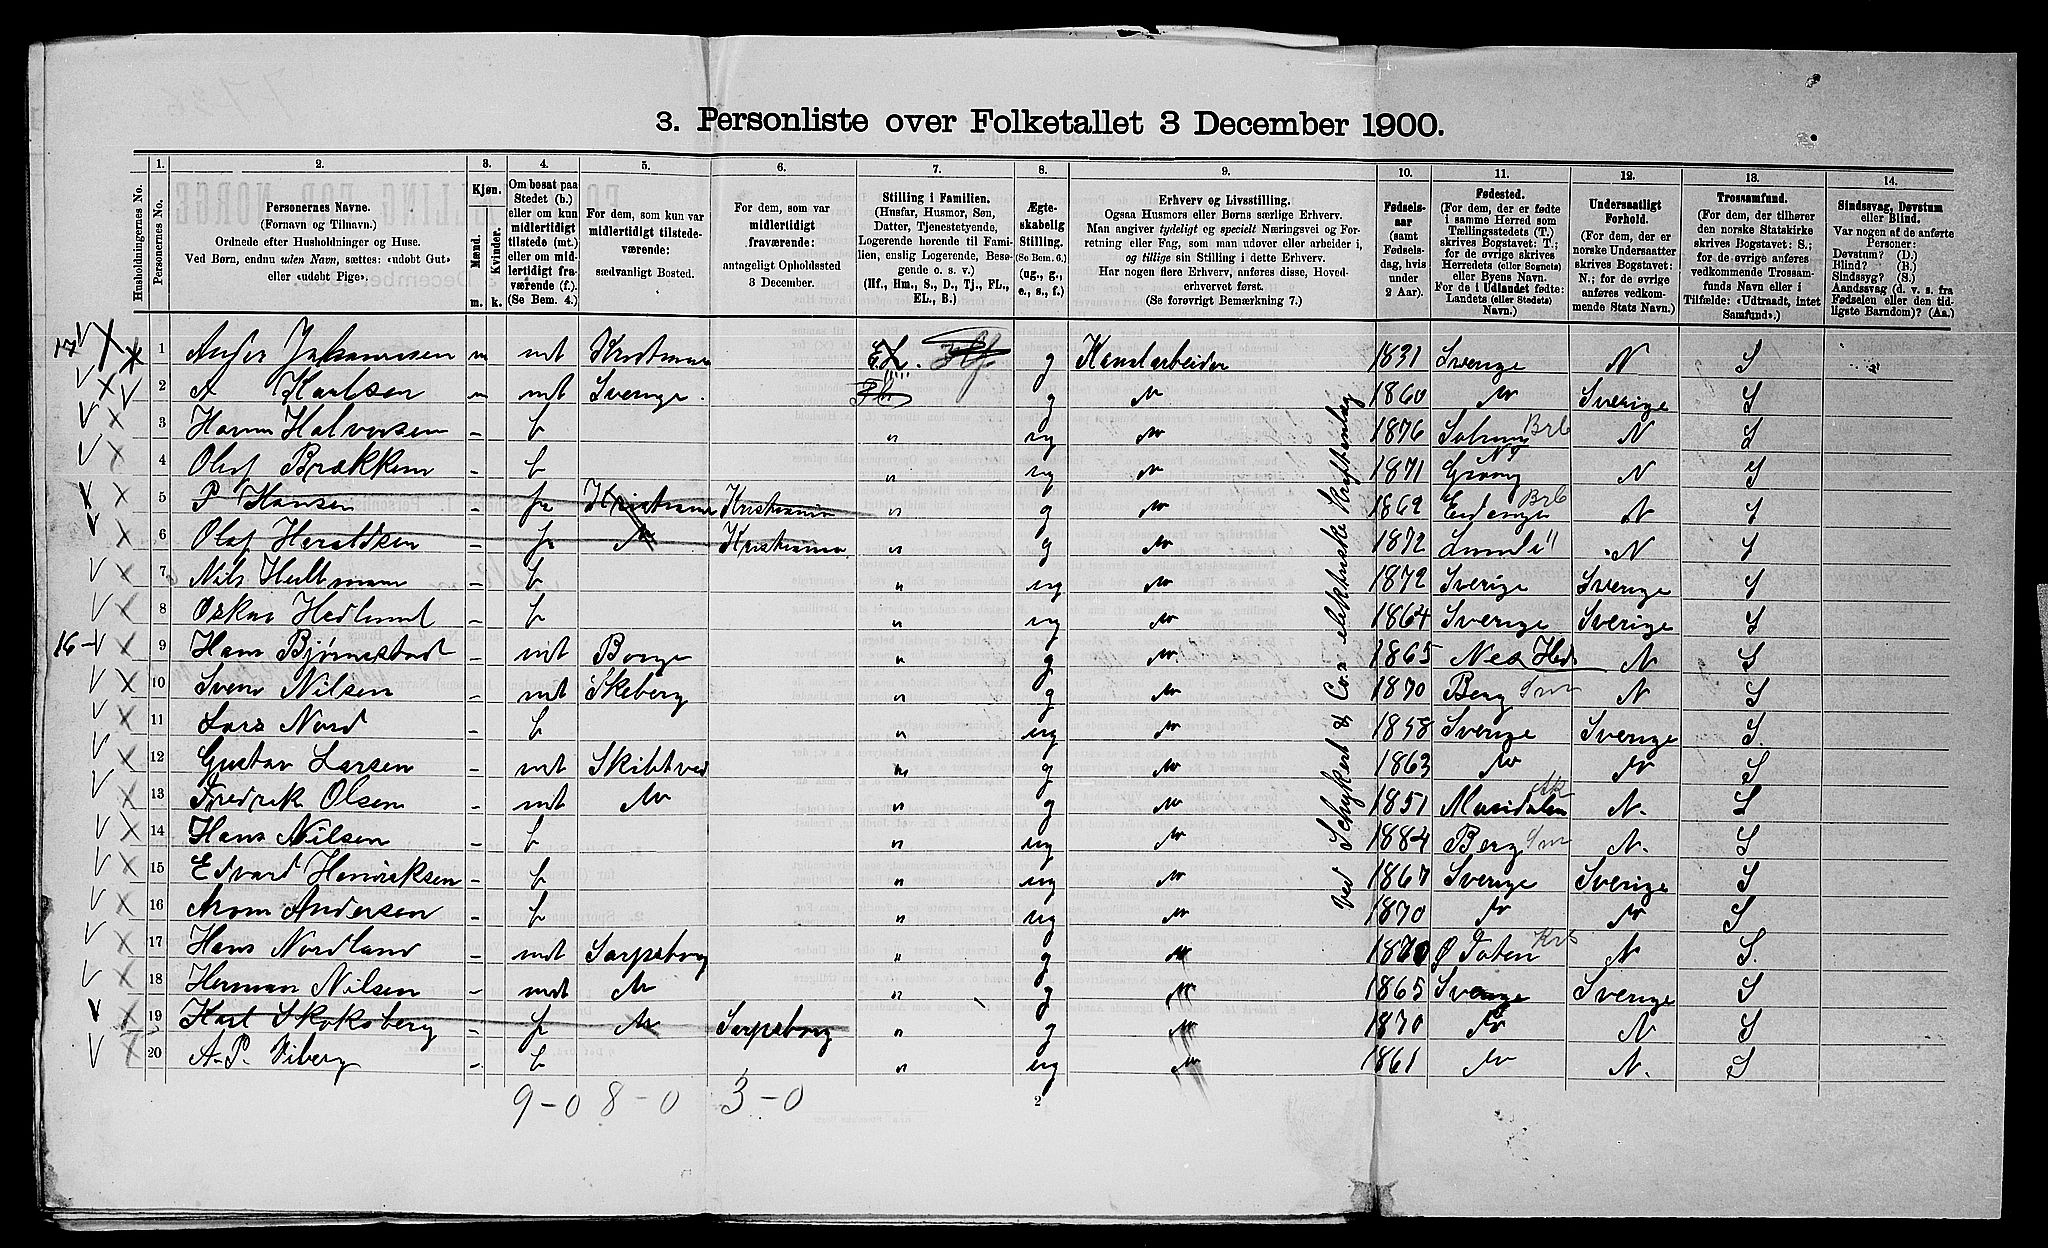 3. Personliste over Folketallet 3 December 1900.
Husholdningernes No.
1. Personernes No.
2. Personernes Navne. (Fornavn og Tilnavn.) Ordnede efter Husholdninger og Huse. Ved Børn, endnu uden Navn, sættes: «udøbt Gut» eller «udøbt Pige».
3. Kjøn. Mænd. m. Kvinder. k.
4. Om bosat paa Stedet (b.) eller om kun midlertidigt tilstede (mt.) eller om midlertidigt fraværende (f.). (Se Bem. 4.)
5. For dem, som kun var midlertidigt tilstedeværende: sædvanligt Bosted.
6. For dem, som var midlertidigt fraværende: antageligt Opholdssted 3 December.
7. Stilling i Familien. (Husfar, Husmor, Søn, Datter, Tjenestetyende, Logerende hørende til Familien, enslig Logerende, Besøgende o. s. v.) (Hf., Hm., S., D., Tj., FL., EL., B.)
8. Ægteskabelig Stilling. (Se Bem. 6.) (ug., g., e., s., f.)
9. Erhverv og Livsstilling. Ogsaa Husmors eller Børns særlige Erhverv. Man angiver tydeligt og specielt Næringsvei og Forretning eller Fag, som man udøver eller arbeider i, og tillige sin Stilling i dette Erhverv. Har nogen flere Erhverv, anføres disse, Hovederhvervet først. (Se forøvrigt Bemærkning 7.)
10. Fødselsaar (samt Fødselsdag, hvis under 2 Aar).
11. Fødested. (For dem, der er fødte i samme Herred som Tællingsstedets (T.) skrives Bogstavet: T.; for de øvrige skrives Herredets (eller Sognets) eller Byens Navn. For de i Udlandet fødte: Landets (eller Stedets) Navn.)
12. Undersaatligt Forhold. (For dem, der er norske Undersaatter skrives Bogstavet: N.; for de øvrige anføres vedkommende Stats Navn.)
13. Trossamfund. (For dem, der tilhører den norske Statskirke skrives Bogstavet: S.; for de øvrige anføres vedkommende Trossamfunds Navn eller i Tilfælde: «Udtraadt, intet Samfund».)
14. Sindssvag, Døvstum eller Blind. Var nogen af de anførte Personer: Døvstum? (D.) Blind? (B.) Sindssyg? (S.) Aandssvag (d. v. s. fra Fødselen eller den tidligste Barndom)? (Aa.)
17 1 Johannesen m mt EL. Hf g 1831 Sverige N S
2 A Karlsen m mt Sverige. g 1860 Sverige S
3 Halvorsen b ug 1876 Brb N S
4 Olaf Brækken b ug 1871 Grong NT N S
5 P Hansen f Kristiania g 1862 Eidanger Brb N S
6 Olaf Haraldsen f Kristiania g 1872 N S
7 Nils Hultman b ug 1872 Sverige Sverige S
8 Oskar Hedlund b ug 1864 Sverige Sverige S
16 9 Hans Bjørnestad mt Borge g 1865 Nes Hed N S
10 Sven Nilsen mt Skeberg g 1870 Berg Sm N S
11 Lars Nord b ug 1858 Sverige Sverige S.
12 Gustav Larsen mt Skibtved g 1863 S
13 Fredrik Olsen mt g 1851 Ak N. S
14 Hans Nilsen b ug 1884 Berg Sm N. S
15 Edvard Henriksen b ug 1867 Sverige Sverige S
16 Aron Andersen b ug 1870 S
17 Hans Nordland mt Sarpsborg g Ø Toten N S.
18 Herman Nilsen mt g 1865 Sverige Sverige S
19 Karl Skoksberg f Sarpsborg g 1870 N S
20 A. P. Viberg b ug 1861 N. S
ved Schukert & Co.s elektriske
9-0 8-0 3-0
2